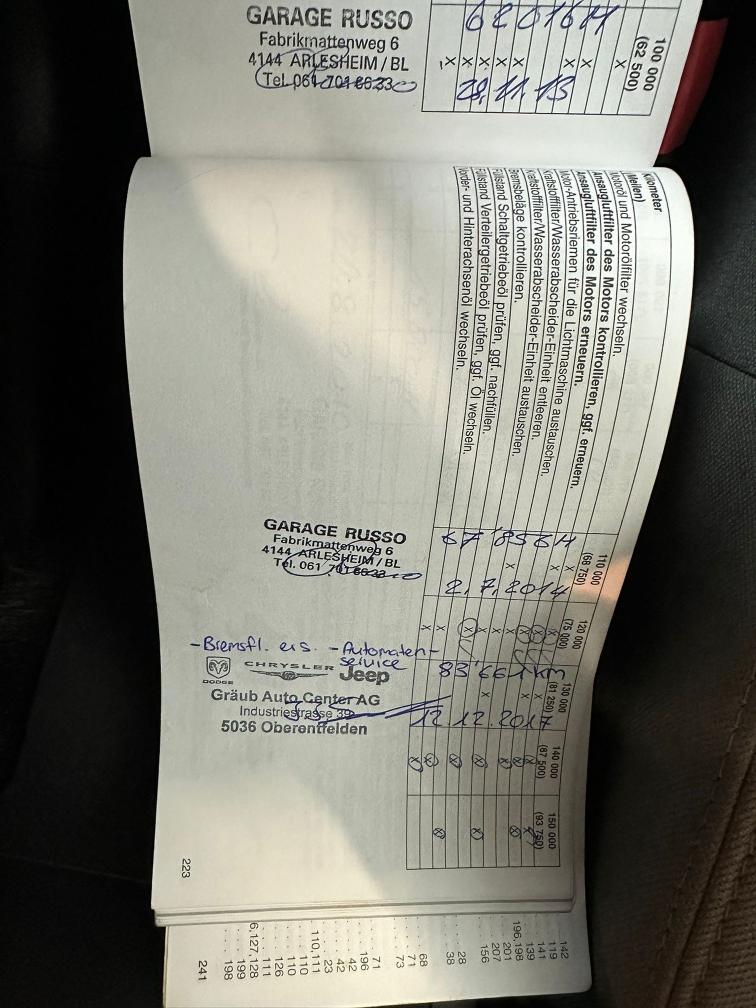 GARAGE RUSSO
Fabrikmattenweg 6
4144 ARLESHEIM / BL
Tel. 061 701 6633
28.11.13
100 000
(62 500)
Kilometer
(Meilen)
Motoröl und Motorölfilter wechseln.
Ansaugluftfilter des Motors kontrollieren, ggf. erneuern.
Ansaugluftfilter des Motors erneuern.
Motor-Antriebsriemen für die Lichtmaschine austauschen.
Kraftstofffilter/Wasserabscheider-Einheit entleeren.
Kraftstofffilter/Wasserabscheider-Einheit austauschen.
Bremsbeläge kontrollieren.
Füllstand Schaltgetriebeöl prüfen, ggf. nachfüllen.
Füllstand Verteilergetriebeöl prüfen, ggf. Öl wechseln.
Vorder- und Hinterachsenöl wechseln.
110 000
(68 750)
120 000
(75 000)
130 000
(81 250)
140 000
(87 500)
150 000
(93 750)
2.7.2014
83.661 km
12.12.2017
GARAGE RUSSO
Fabrikmattenweg 6
4144 ARLESHEIM / BL
Tel. 061 701 6633
-Bremsfl. ers. -Automaten-
service
DODGE
CHRYSLER
Jeep
Gräub Auto Center AG
Industriestrasse 39
5036 Oberentfelden
223
142
119
141
139
196,198
201
207
156
28
38
68
71
73
71
196
42
42
23
110,111
110
110
126
111
6,127,128
199
198
241